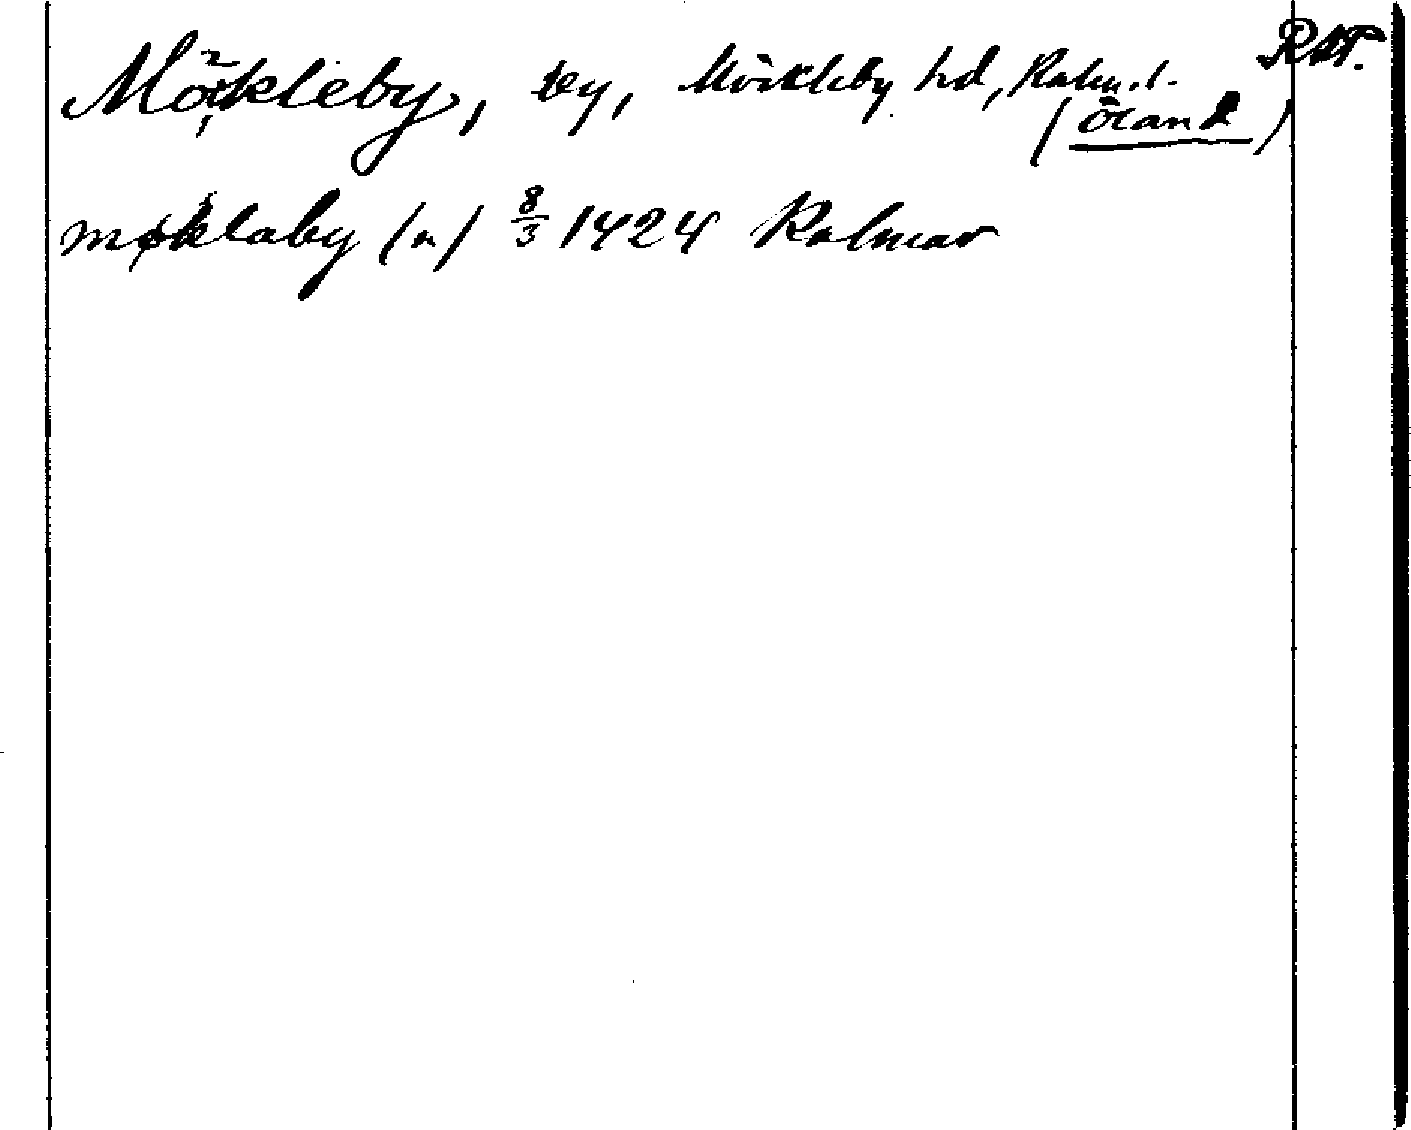 Möckleby, by, Möckleby hd, Kalm. l. RAP.
(Öland)
møklaby (n) 8/3 1424 Kalmar